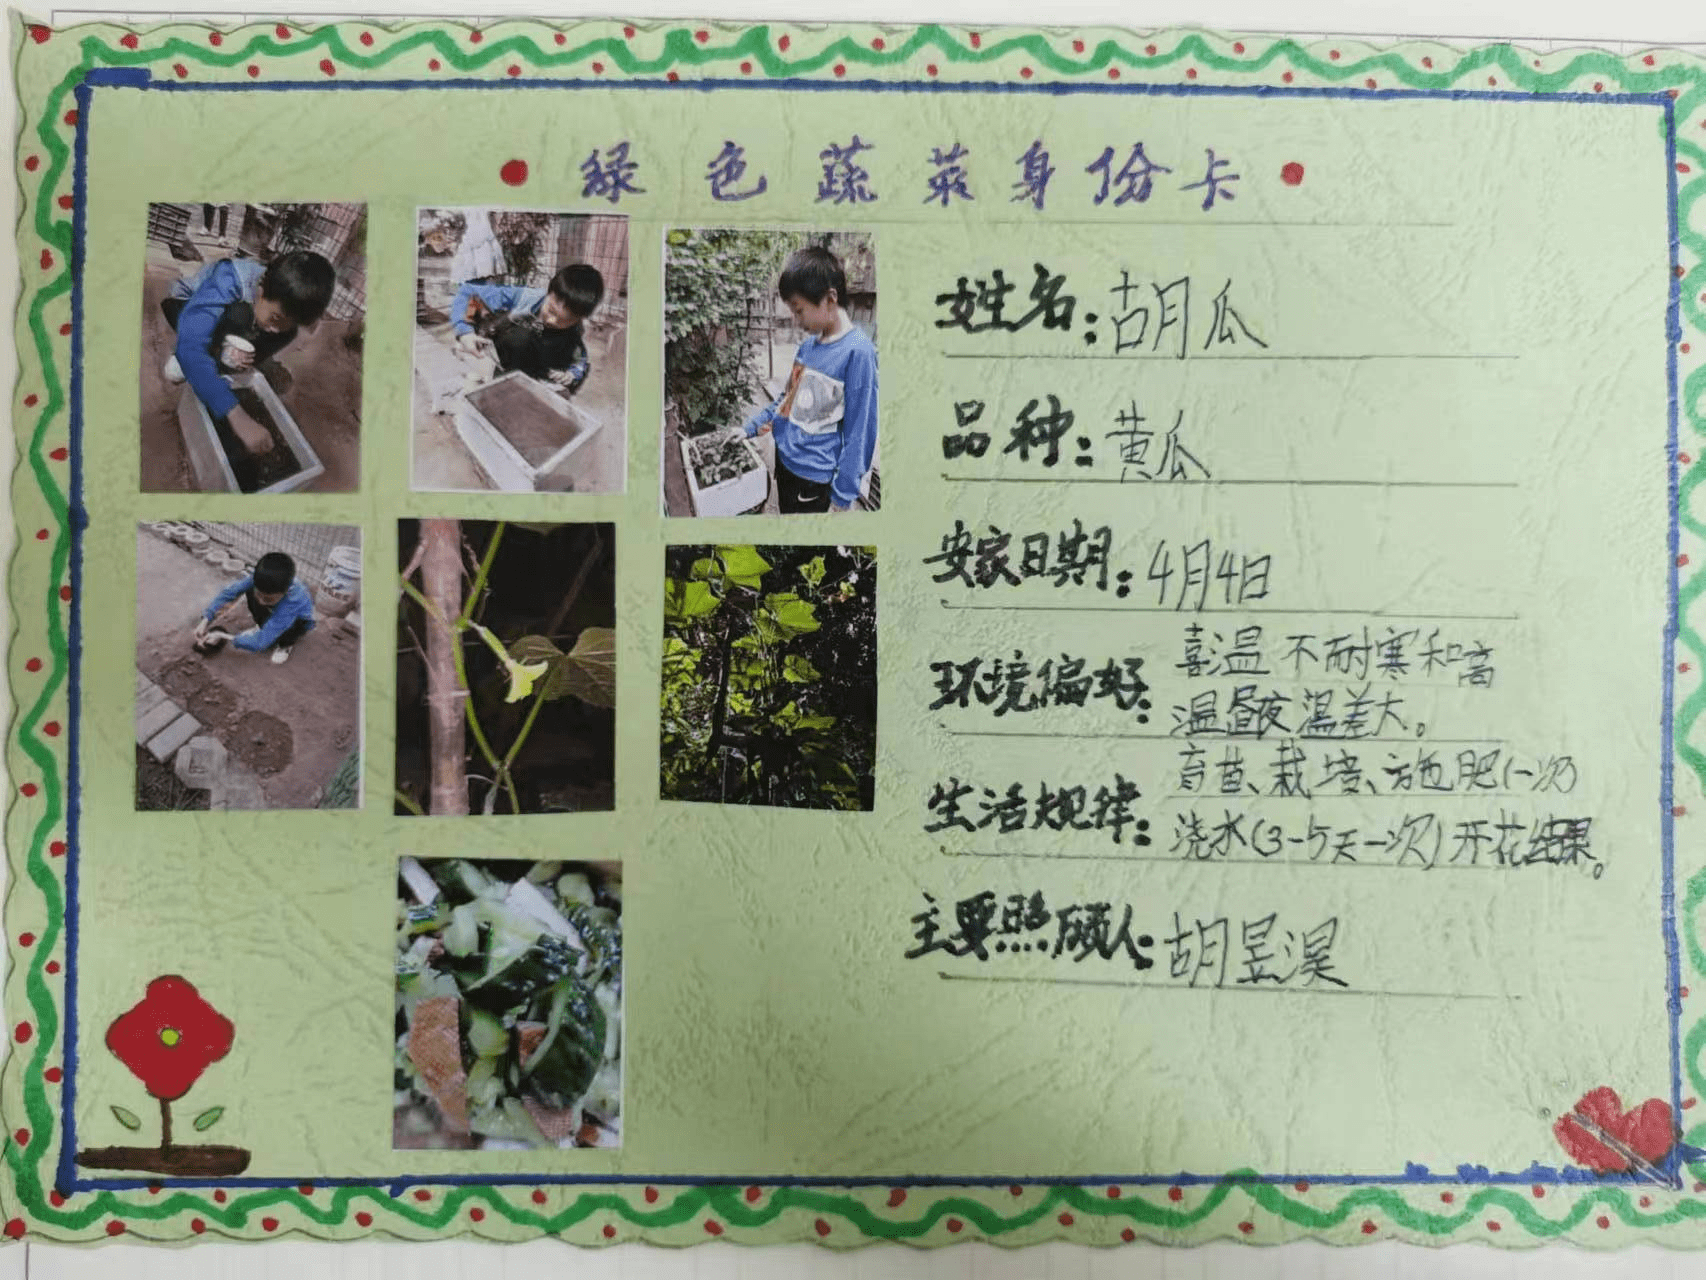 绿色蔬菜身份卡
姓名:胡瓜
品种:黄瓜
安家日期:4月4日
环境偏好:喜温 不耐寒和高
温昼夜温差大。
生活规律:育苗、栽培、施肥(一次)
浇水(3-5天一次)开花结果。
主要照顾人:胡昱淏